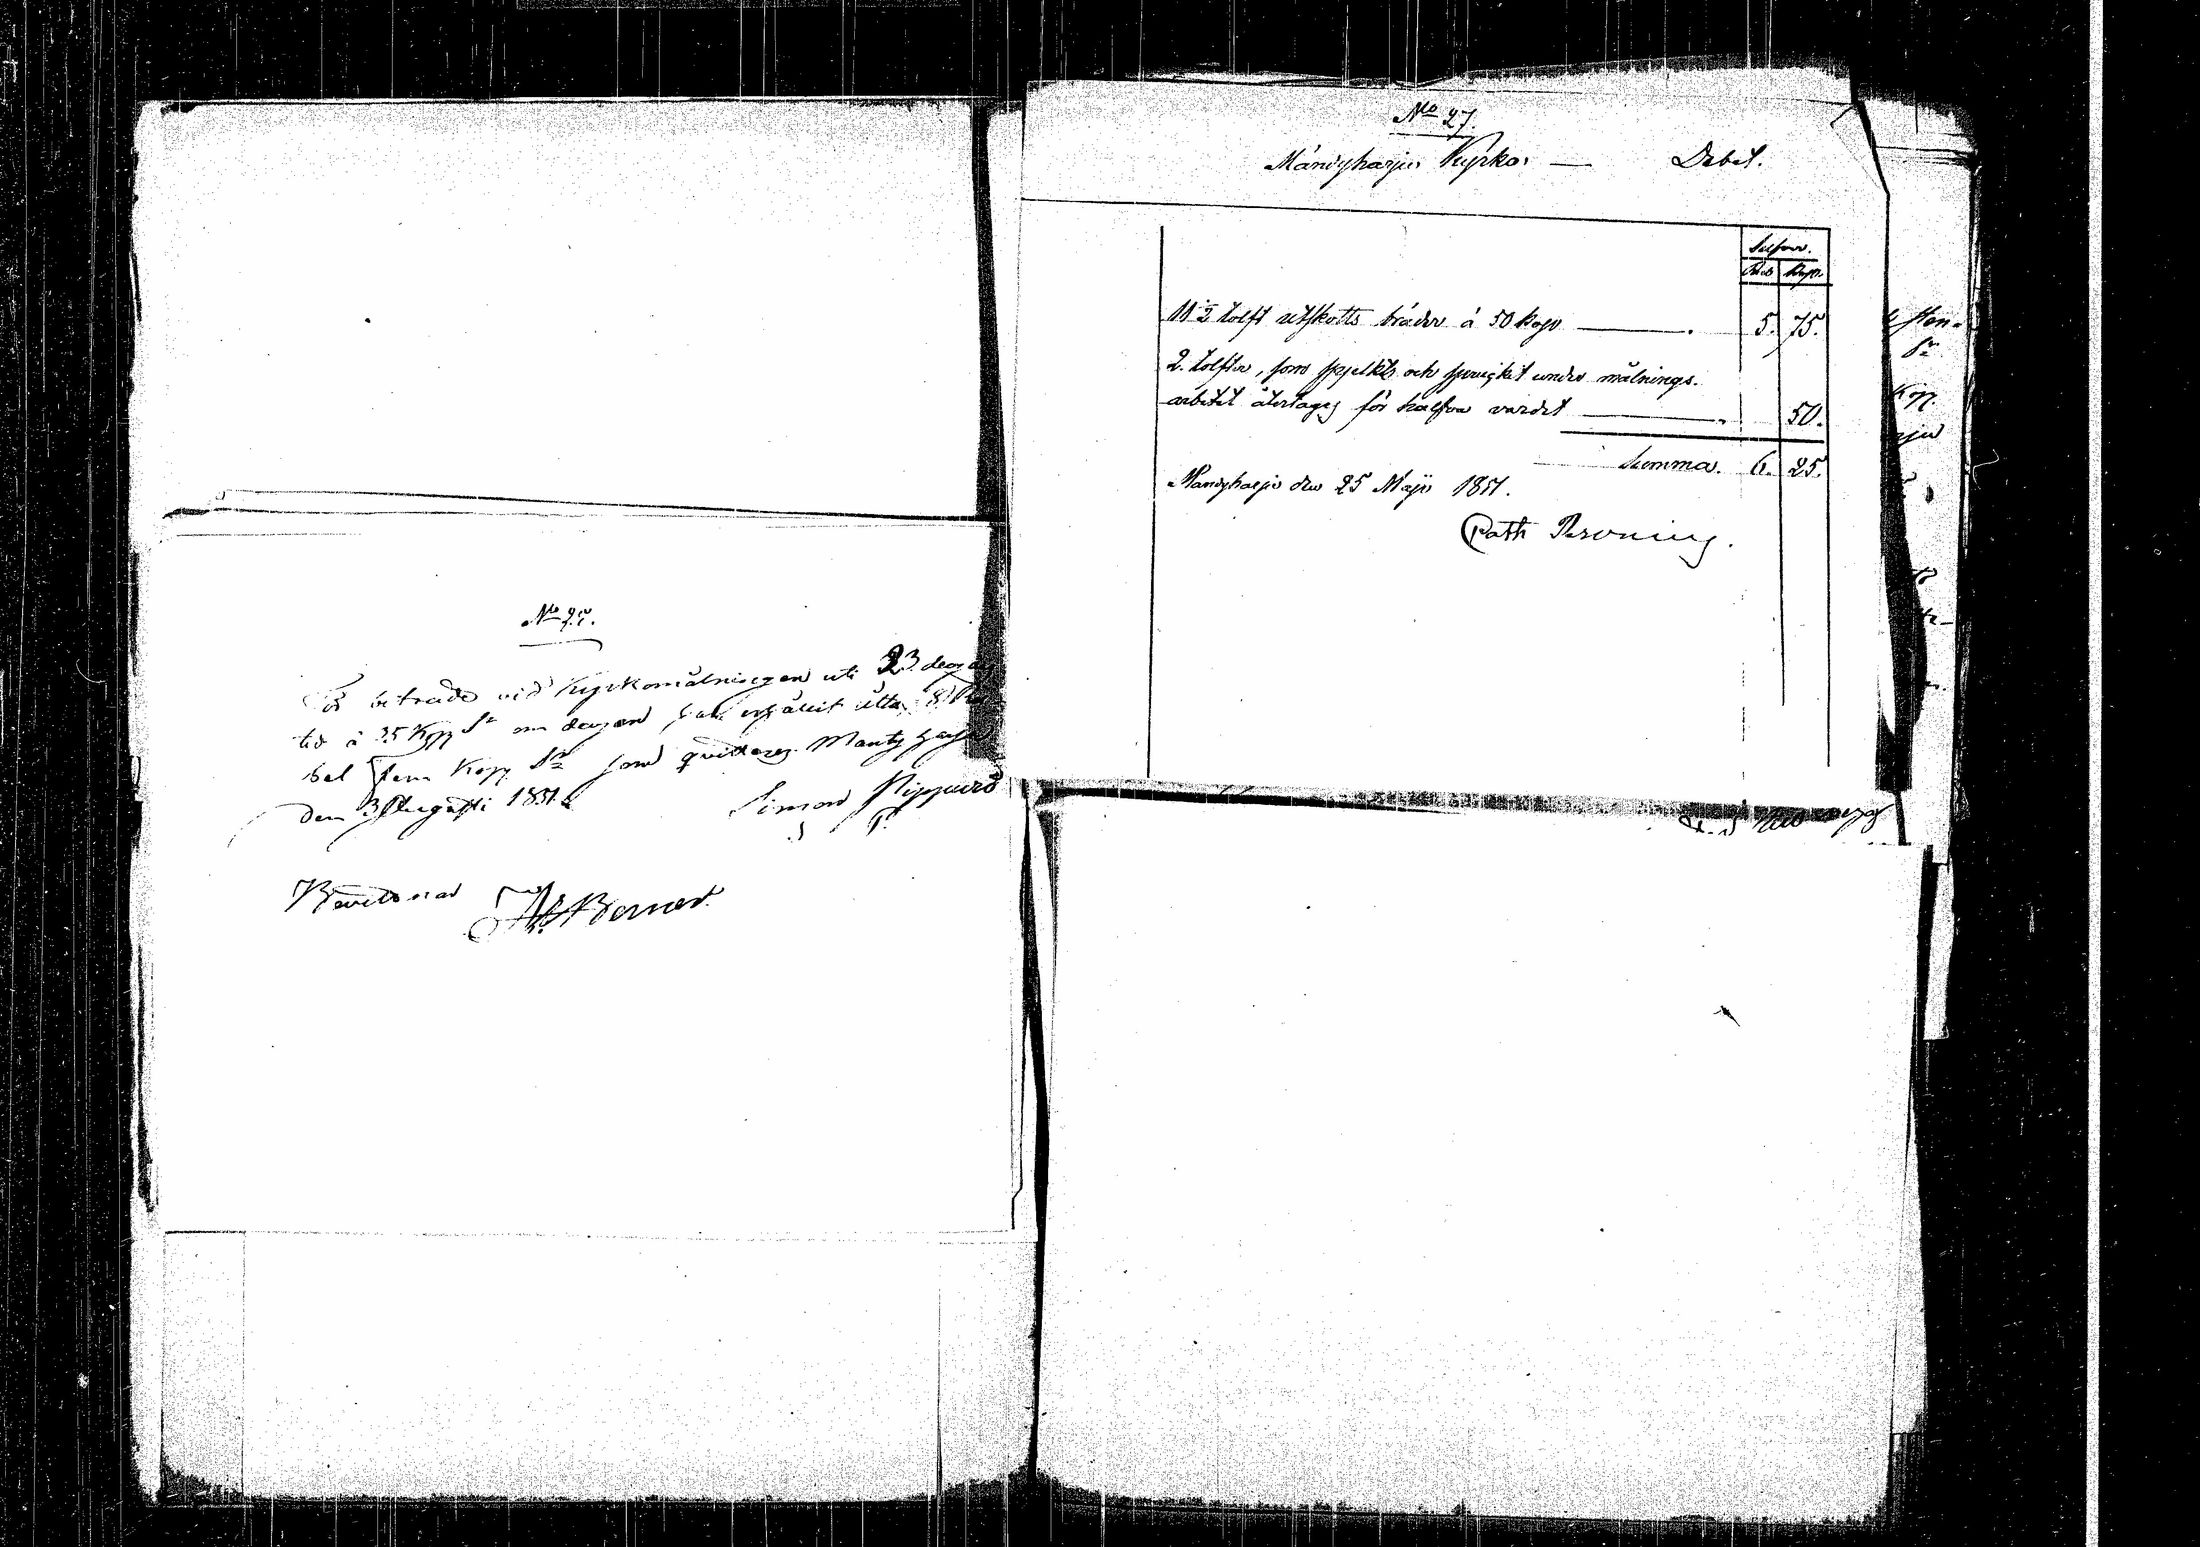 No 25.
För biträde vid Kyrkomålningen uti 23 dagars
tid à 35 Kop Sr om dagen, har erhållit åtta 8 Ru
bel fem Kop. Sr som qvitteras. Mäntyharju
den 3 Augusti 1851.
Simon Pippuro
Bevittnad
No 27.
Mändyharju Kyrka — Debet.
Silfver.
Rub Kop.
11 1/2 tolft utskotts bräder á 50 kop 5. 75.
2. tolfter, som spjelkts och spruckit under målnings-
arbetet återtages för halfva värdet 50.
Summa. 6. 25.
Mändyharju den 25 Maji 1851.
sten-
Sr
Kop.